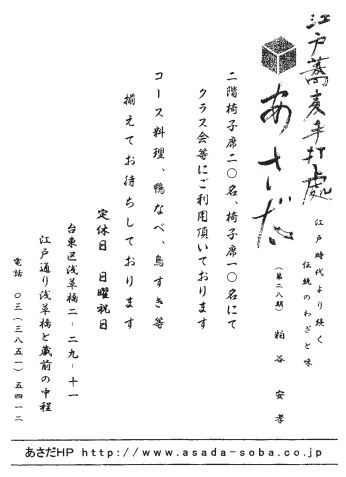 江戸蕎麦手打處
あさだ
江戸時代より続く
伝統のわざと味
(第二八期) 粕谷 安孝
二階椅子席二〇名、椅子席一〇名にて
クラス会等にご利用頂いております
コース料理、鴨なべ、鳥すき等
揃えてお待ちしております
定休日 日曜祝日
台東区浅草橋二-二九-十一
江戸通り浅草橋と蔵前の中程
電話 〇三(三八五一)五四一二
あさだHP http://www.asada-soba.co.jp